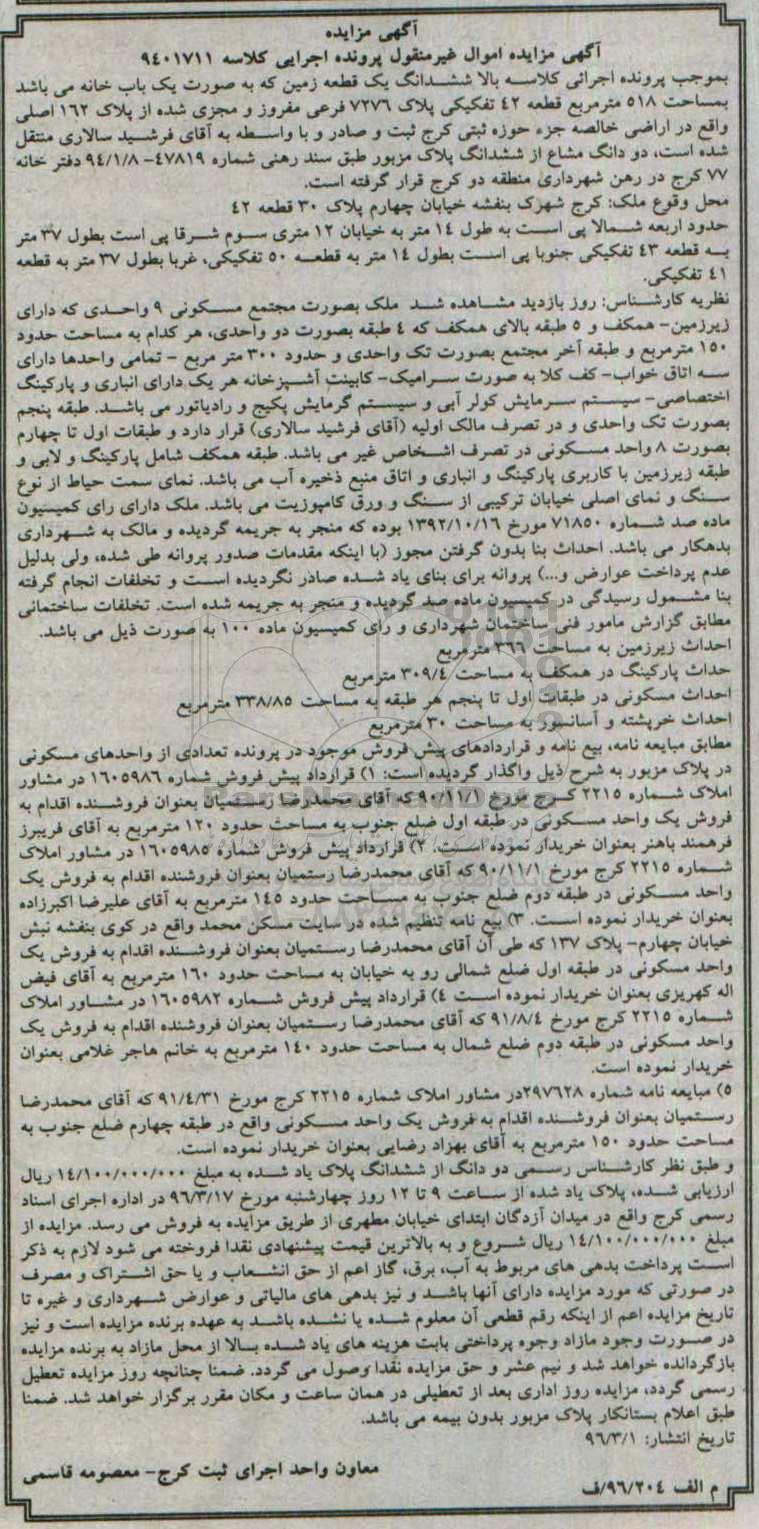 آگهی مزایده
آگهی مزایده اموال غیرمنقول پرونده اجرایی کلاسه ۹۴۰۱۷۱۱
بموجب پرونده اجرائی کلاسه بالا ششدانگ یک قطعه زمین که به صورت یک باب خانه می باشد
بمساحت ۵۱۸ مترمربع قطعه ۴۲ تفکیکی پلاک ۷۲۷۶ فرعی مفروز و مجزی شده از پلاک ۱۶۲ اصلی
واقع در اراضی خالصه جزء حوزه ثبتی کرج ثبت و صادر و با واسطه به آقای فرشید سالاری منتقل
شده است، دو دانگ مشاع از ششدانگ پلاک مزبور طبق سند رهنی شماره ۴۷۸۱۹- ۹۴/۱/۸ دفتر خانه
۷۷ کرج در رهن شهرداری منطقه دو کرج قرار گرفته است.
محل وقوع ملک: کرج شهرک بنفشه خیابان چهارم پلاک ۳۰ قطعه ۴۲
حدود اربعه شمالا پی است به طول ۱۴ متر به خیابان ۱۲ متری سوم شرقا پی است بطول ۳۷ متر
به قطعه ۴۳ تفکیکی جنوبا پی است بطول ۱۴ متر به قطعه ۵۰ تفکیکی، غربا بطول ۳۷ متر به قطعه
۴۱ تفکیکی.
نظریه کارشناس: روز بازدید مشاهده شد ملک بصورت مجتمع مسکونی ۹ واحدی که دارای
زیرزمین- همکف و ۵ طبقه بالای همکف که ۴ طبقه بصورت دو واحدی، هر کدام به مساحت حدود
۱۵۰ مترمربع و طبقه آخر مجتمع بصورت تک واحدی و حدود ۳۰۰ متر مربع - تمامی واحدها دارای
سه اتاق خواب- کف کلا به صورت سرامیک- کابینت آشپزخانه هر یک دارای انباری و پارکینگ
اختصاصی- سیستم سرمایش کولر آبی و سیستم گرمایش پکیج و رادیاتور می باشد. طبقه پنجم
بصورت تک واحدی و در تصرف مالک اولیه (آقای فرشید سالاری) قرار دارد و طبقات اول تا چهارم
بصورت ۸ واحد مسکونی در تصرف اشخاص غیر می باشد. طبقه همکف شامل پارکینگ و لابی و
طبقه زیرزمین با کاربری پارکینگ و انباری و اتاق منبع ذخیره آب می باشد. نمای سمت حیاط از نوع
سنگ و نمای اصلی خیابان ترکیبی از سنگ و ورق کامپوزیت می باشد. ملک دارای رای کمیسیون
ماده صد شماره ۷۱۸۵۰ مورخ ۱۳۹۲/۱۰/۱۶ بوده که منجر به جریمه گردیده و مالک به شهرداری
بدهکار می باشد. احداث بنا بدون گرفتن مجوز (با اینکه مقدمات صدور پروانه طی شده، ولی بدلیل
عدم پرداخت عوارض و...) پروانه برای بنای یاد شده صادر نگردیده است و تخلفات انجام گرفته
بنا مشمول رسیدگی در کمیسیون ماده صد گردیده و منجر به جریمه شده است. تخلفات ساختمانی
مطابق گزارش مامور فنی ساختمان شهرداری و رای کمیسیون ماده ۱۰۰ به صورت ذیل می باشد.
احداث زیرزمین به مساحت ۳۶۶ مترمربع
حداث پارکینگ در همکف به مساحت ۳۰۹/۴ مترمربع
احداث مسکونی در طبقات اول تا پنجم هر طبقه به مساحت ۳۳۸/۸۵ مترمربع
احداث خرپشته و آسانسور به مساحت ۳۰ مترمربع
مطابق مبایعه نامه، بیع نامه و قراردادهای پیش فروش موجود در پرونده تعدادی از واحدهای مسکونی
در پلاک مزبور به شرح ذیل واگذار گردیده است: ۱) قرارداد پیش فروش شماره ۱۶۰۵۹۸۶ در مشاور
املاک شماره ۲۲۱۵ کرج مورخ ۹۰/۱۱/۱ که آقای محمدرضا رستمیان بعنوان فروشنده اقدام به
فروش یک واحد مسکونی در طبقه اول ضلع جنوب به مساحت حدود ۱۲۰ مترمربع به آقای فریبرز
فرهمند باهنر بعنوان خریدار نموده است. ۲) قرارداد پیش فروش شماره ۱۶۰۵۹۸۵ در مشاور املاک
شماره ۲۲۱۵ کرج مورخ ۹۰/۱۱/۱ که آقای محمدرضا رستمیان بعنوان فروشنده اقدام به فروش یک
واحد مسکونی در طبقه دوم ضلع جنوب به مساحت حدود ۱۴۵ مترمربع به آقای علیرضا اکبرزاده
بعنوان خریدار نموده است. ۳) بیع نامه تنظیم شده در سایت مسکن محمد واقع در کوی بنفشه نبش
خیابان چهارم- پلاک ۱۳۷ که طی آن آقای محمدرضا رستمیان بعنوان فروشنده اقدام به فروش یک
واحد مسکونی در طبقه اول ضلع شمالی رو به خیابان به مساحت حدود ۱۶۰ مترمربع به آقای فیض
اله کهریزی بعنوان خریدار نموده است ۴) قرارداد پیش فروش شماره ۱۶۰۵۹۸۲ در مشاور املاک
شماره ۲۲۱۵ کرج مورخ ۹۱/۸/۴ که آقای محمدرضا رستمیان بعنوان فروشنده اقدام به فروش یک
واحد مسکونی در طبقه دوم ضلع شمال به مساحت حدود ۱۴۰ مترمربع به خانم هاجر غلامی بعنوان
خریدار نموده است.
۵) مبایعه نامه شماره ۲۹۷۶۲۸در مشاور املاک شماره ۲۲۱۵ کرج مورخ ۹۱/۴/۳۱ که آقای محمدرضا
رستمیان بعنوان فروشنده اقدام به فروش یک واحد مسکونی واقع در طبقه چهارم ضلع جنوب به
مساحت حدود ۱۵۰ مترمربع به آقای بهزاد رضایی بعنوان خریدار نموده است.
و طبق نظر کارشناس رسمی دو دانگ از ششدانگ پلاک یاد شده به مبلغ ۱۴/۱۰۰/۰۰۰/۰۰۰ ریال
ارزیابی شده، پلاک یاد شده از ساعت ۹ تا ۱۲ روز چهارشنبه مورخ ۹۶/۳/۱۷ در اداره اجرای اسناد
رسمی کرج واقع در میدان آزدگان ابتدای خیابان مطهری از طریق مزایده به فروش می رسد. مزایده از
مبلغ ۱۴/۱۰۰/۰۰۰/۰۰۰ ریال شروع و به بالاترین قیمت پیشنهادی نقدا فروخته می شود لازم به ذکر
است پرداخت بدهی های مربوط به آب، برق، گاز اعم از حق انشعاب و یا حق اشتراک و مصرف
در صورتی که مورد مزایده دارای آنها باشد و نیز بدهی های مالیاتی و عوارض شهرداری و غیره تا
تاریخ مزایده اعم از اینکه رقم قطعی آن معلوم شده یا نشده باشد به عهده برنده مزایده است و نیز
در صورت وجود مازاد وجوه پرداختی بابت هزینه های یاد شده بالا از محل مازاد به برنده مزایده
بازگردانده خواهد شد و نیم عشر و حق مزایده نقدا وصول می گردد. ضمنا چنانچه روز مزایده تعطیل
رسمی گردد، مزایده روز اداری بعد از تعطیلی در همان ساعت و مکان مقرر برگزار خواهد شد. ضمنا
طبق اعلام بستانکار پلاک مزبور بدون بیمه می باشد.
تاریخ انتشار: ۹۶/۳/۱
معاون واحد اجرای ثبت کرج- معصومه قاسمی
م الف ۹۶/۲۰۴/ف